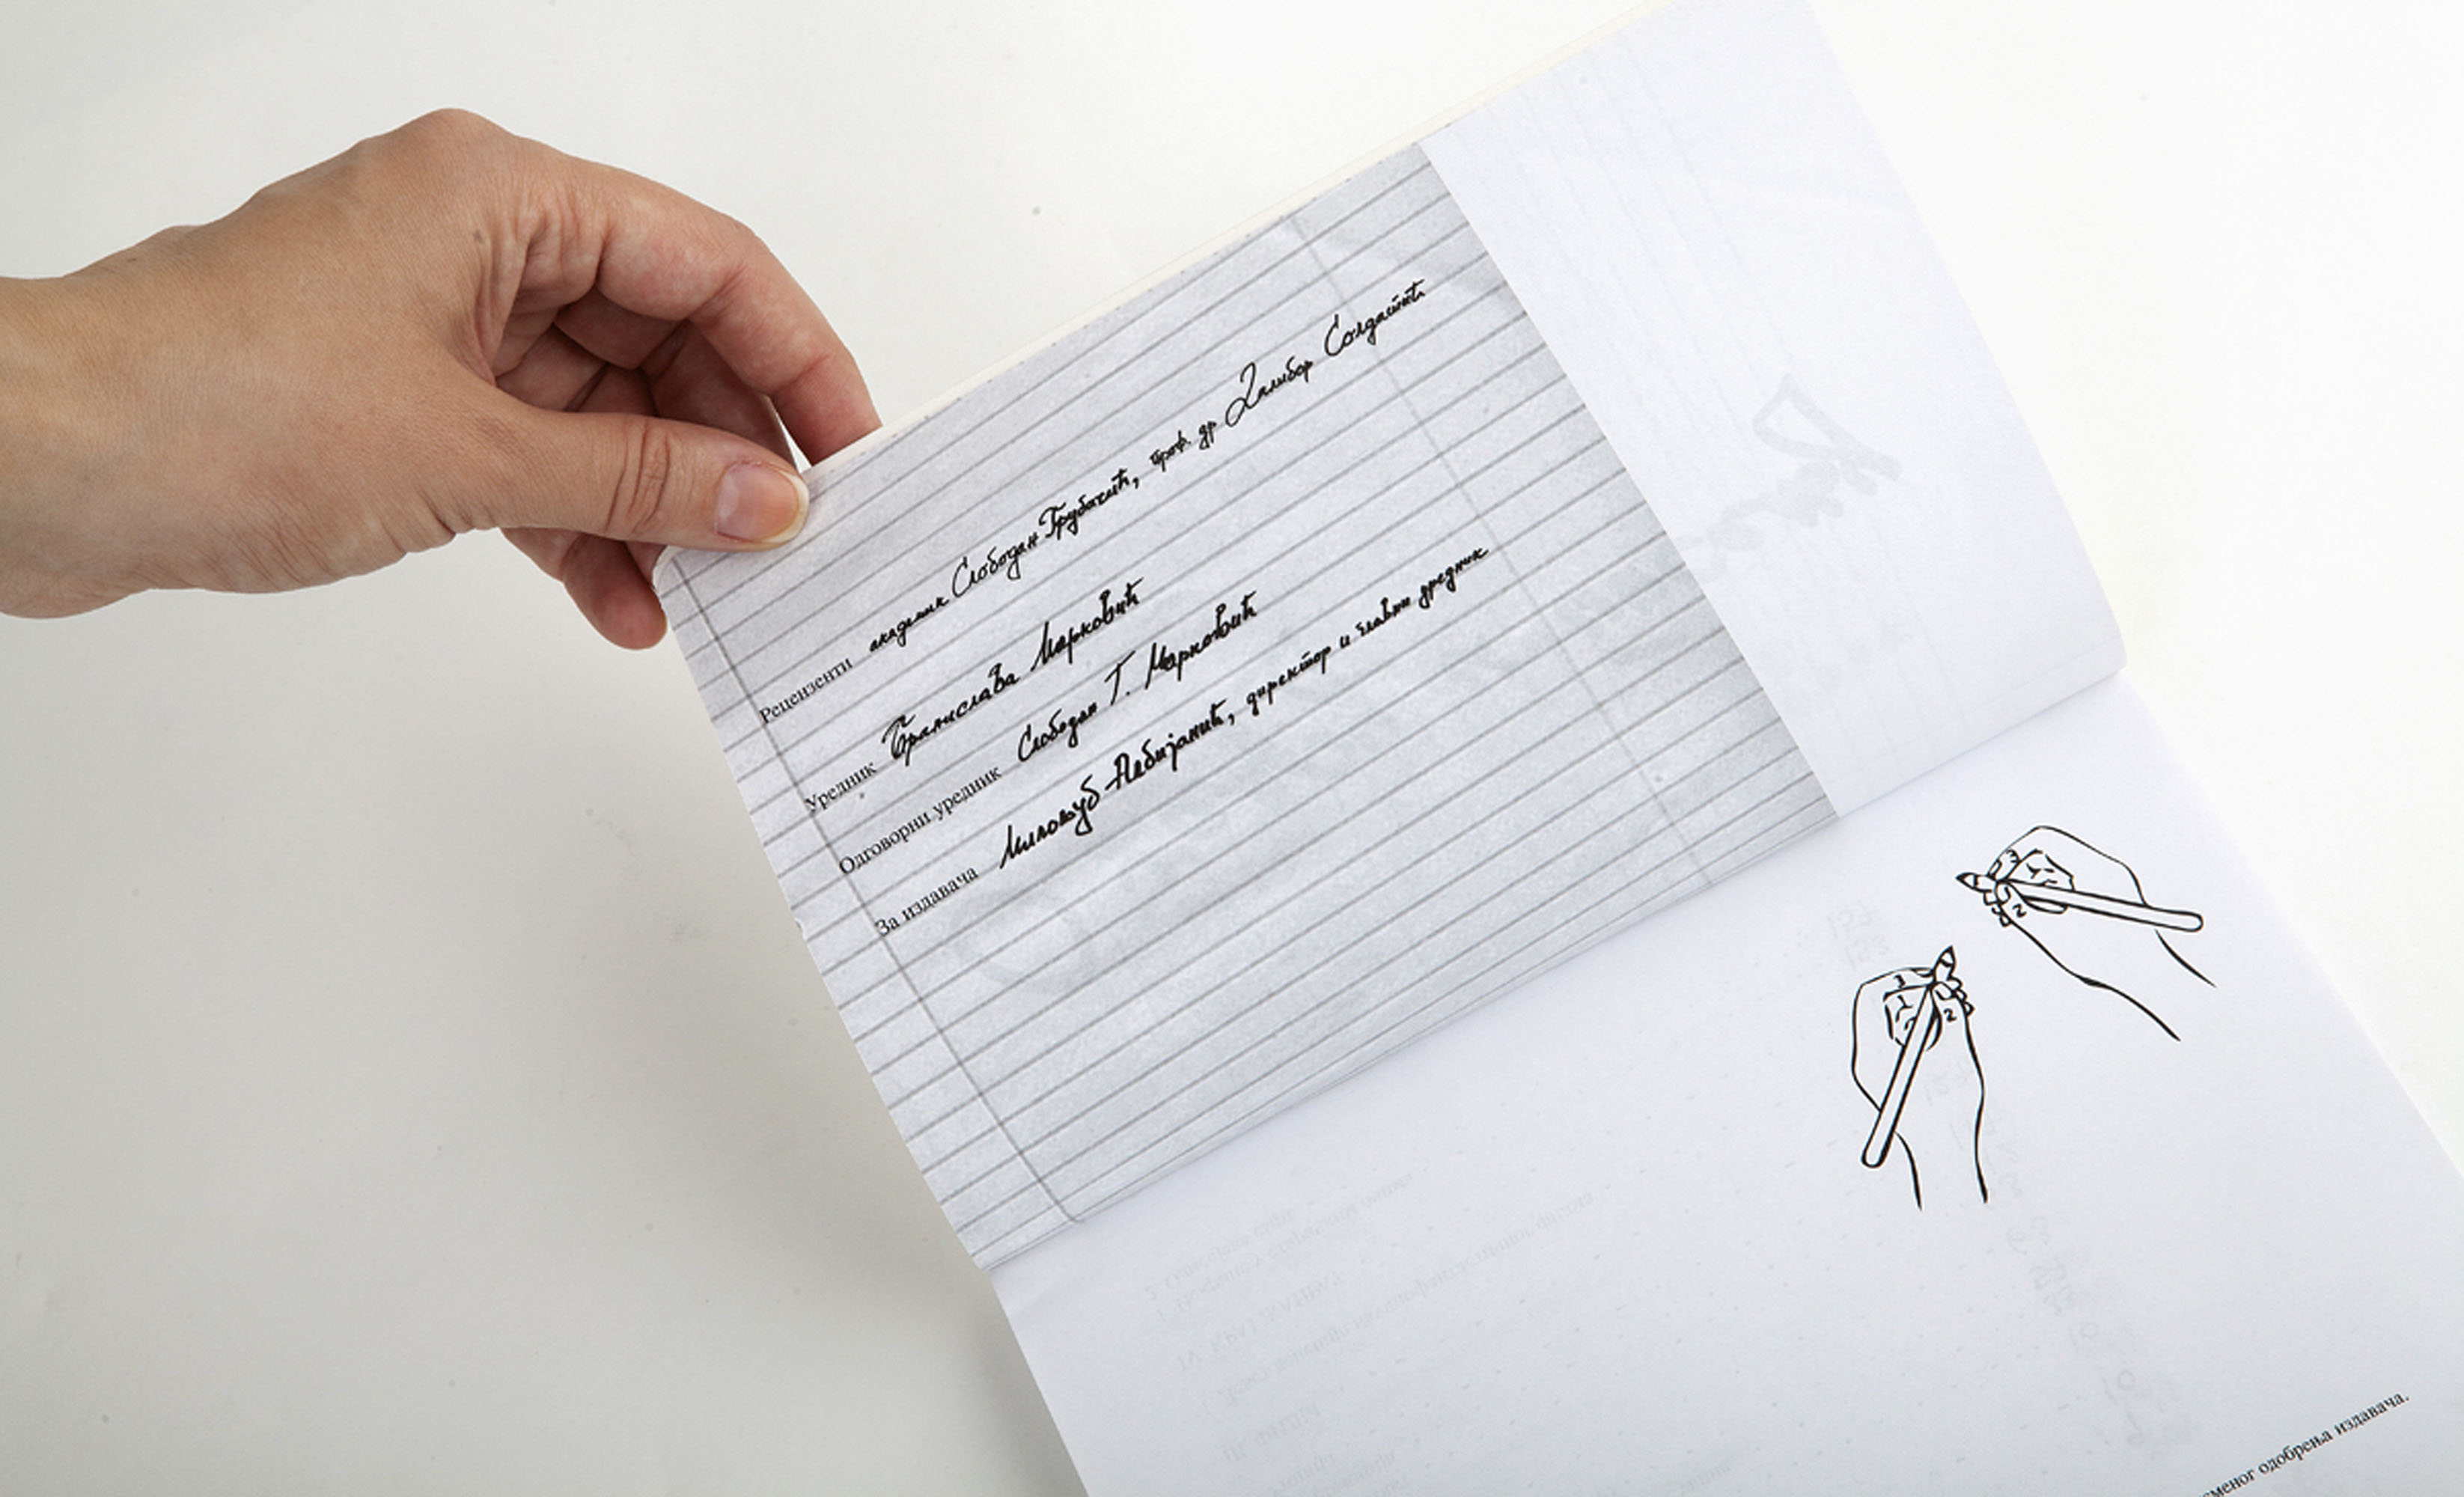 Рецензенти академик Слободан Грубачић, проф. др Далибор Солдатић
Уредник Бранислава Марковић
Одговорни уредник Слободан Г. Марковић
За издавача Милољуб Албијанић, директор и главни уредник
одобрења издавача.